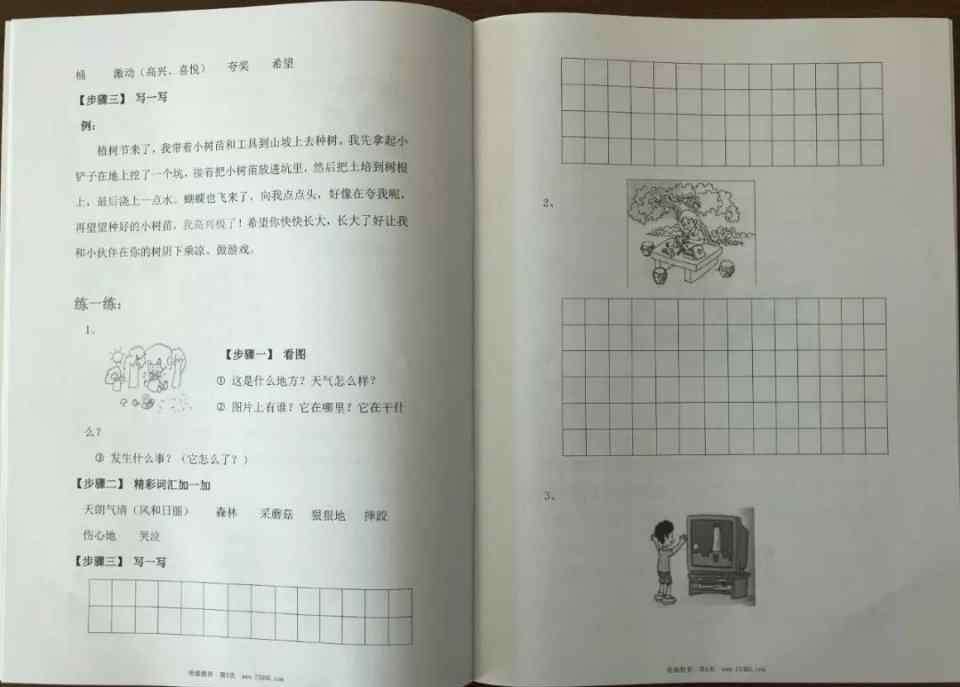 桶 激动（高兴、喜悦） 夸奖 希望
【步骤三】 写一写
例：
植树节来了，我带着小树苗和工具到山坡上去种树。我先拿起小
铲子在地上挖了一个坑，接着把小树苗放进坑里，然后把土培到树根
上，最后浇上一点水。蝴蝶也飞来了，向我点点头，好像在夸我呢，
再望望种好的小树苗，我高兴极了！希望你快快长大，长大了好让我
和小伙伴在你的树阴下乘凉、做游戏。
练一练：
1、
【步骤一】 看图
① 这是什么地方？天气怎么样？
② 图片上有谁？它在哪里？它在干什
么？
③ 发生什么事？（它怎么了？）
【步骤二】 精彩词汇加一加
天朗气清（风和日丽） 森林 采蘑菇 狠狠地 摔跤
伤心地 哭泣
【步骤三】 写一写
2、
3、